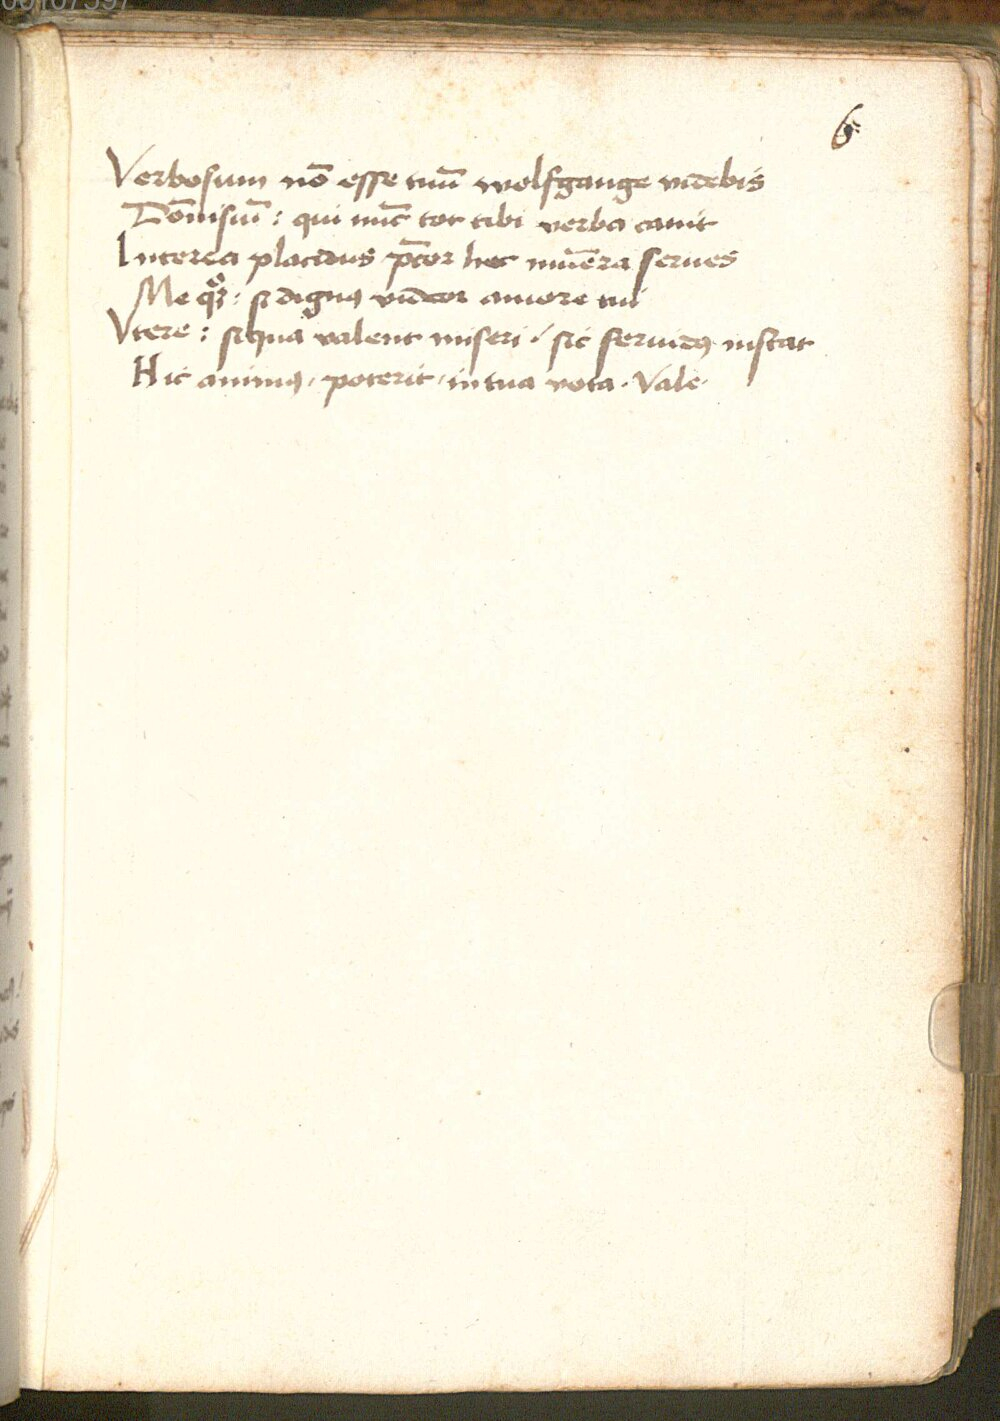 6
Verbosum nō esse tuū wolfgange videbis
Dōnisiū : qui nūc tot tibi verba canit
Interea placidus p̄cor hec mūera serues
Me qȝ : si dignꝰ videor amore tui
Vtere : si qua valent miseri / sic feruidꝰ instat
Hic animꝰ, poterit, in tua vota . Vale .